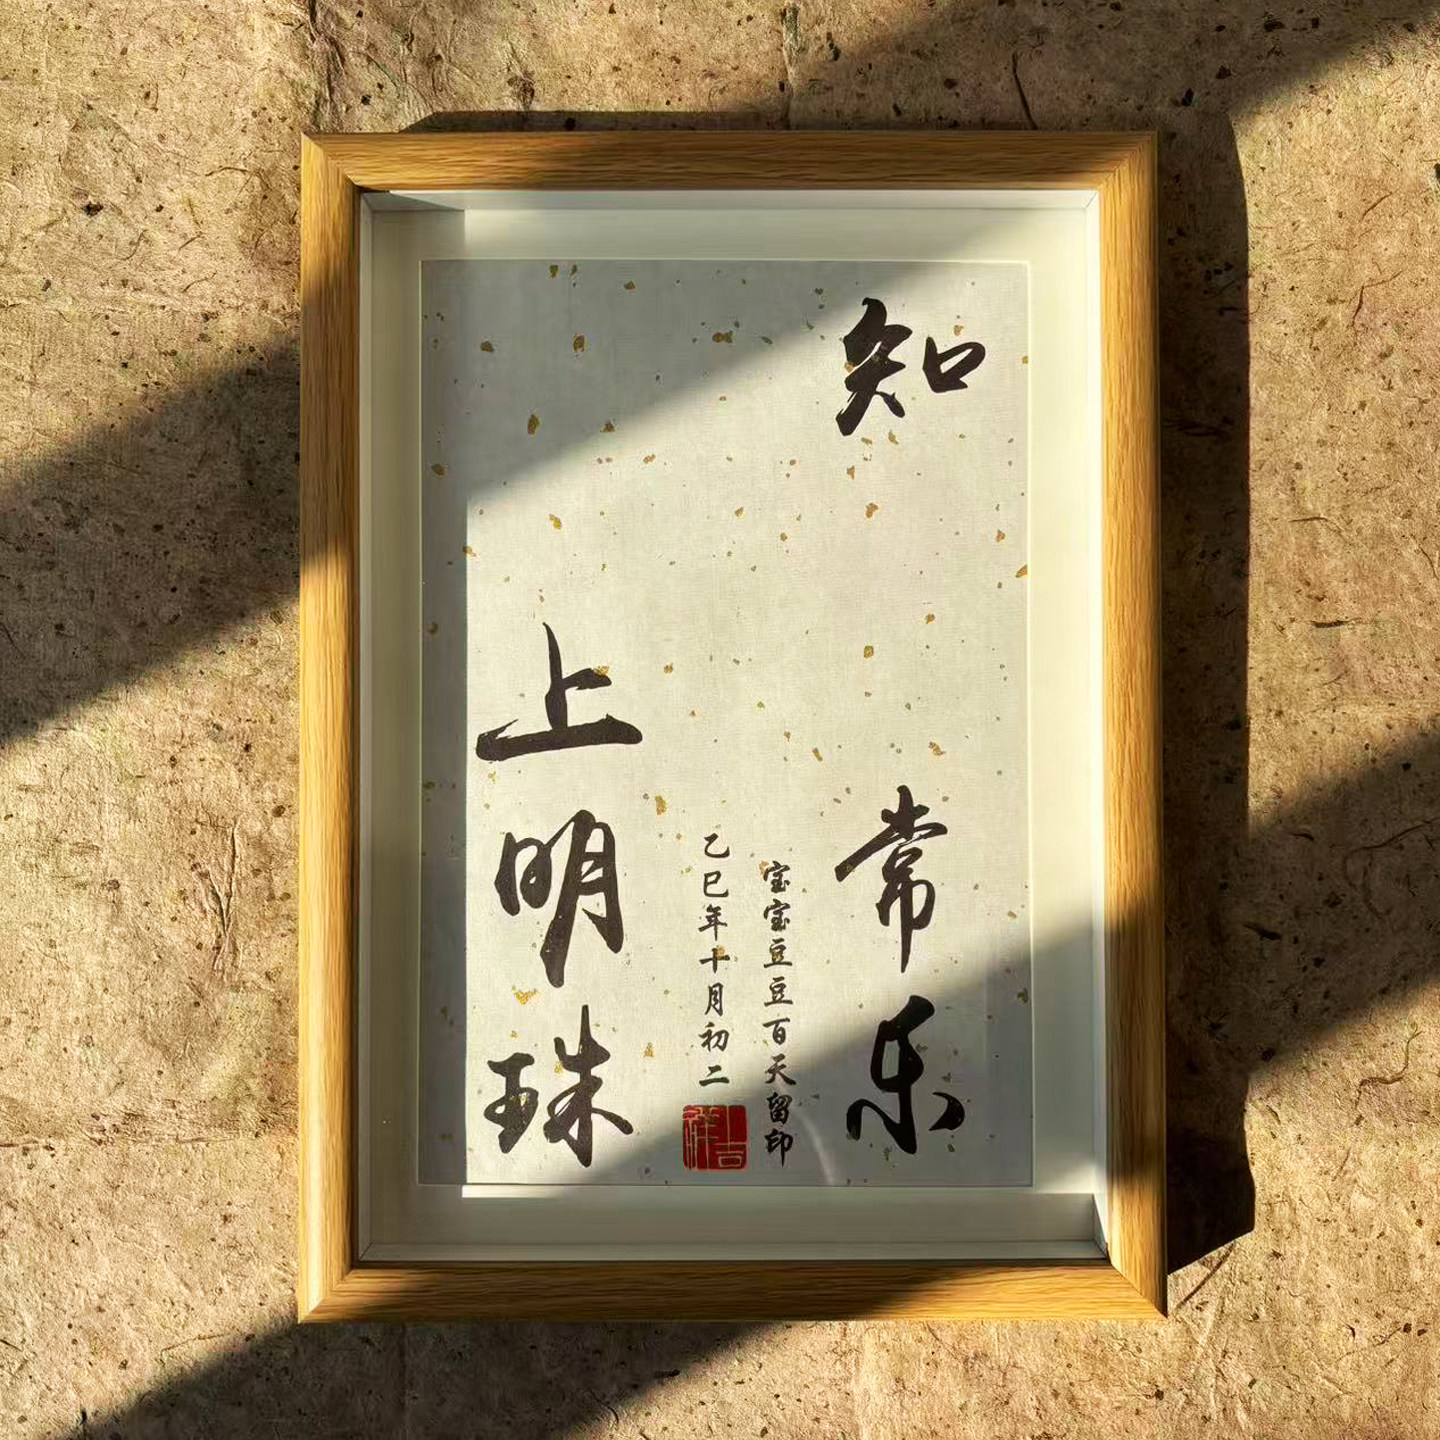 知 常乐
宝宝豆豆百天留印
乙巳年十月初二
吉祥
上明珠